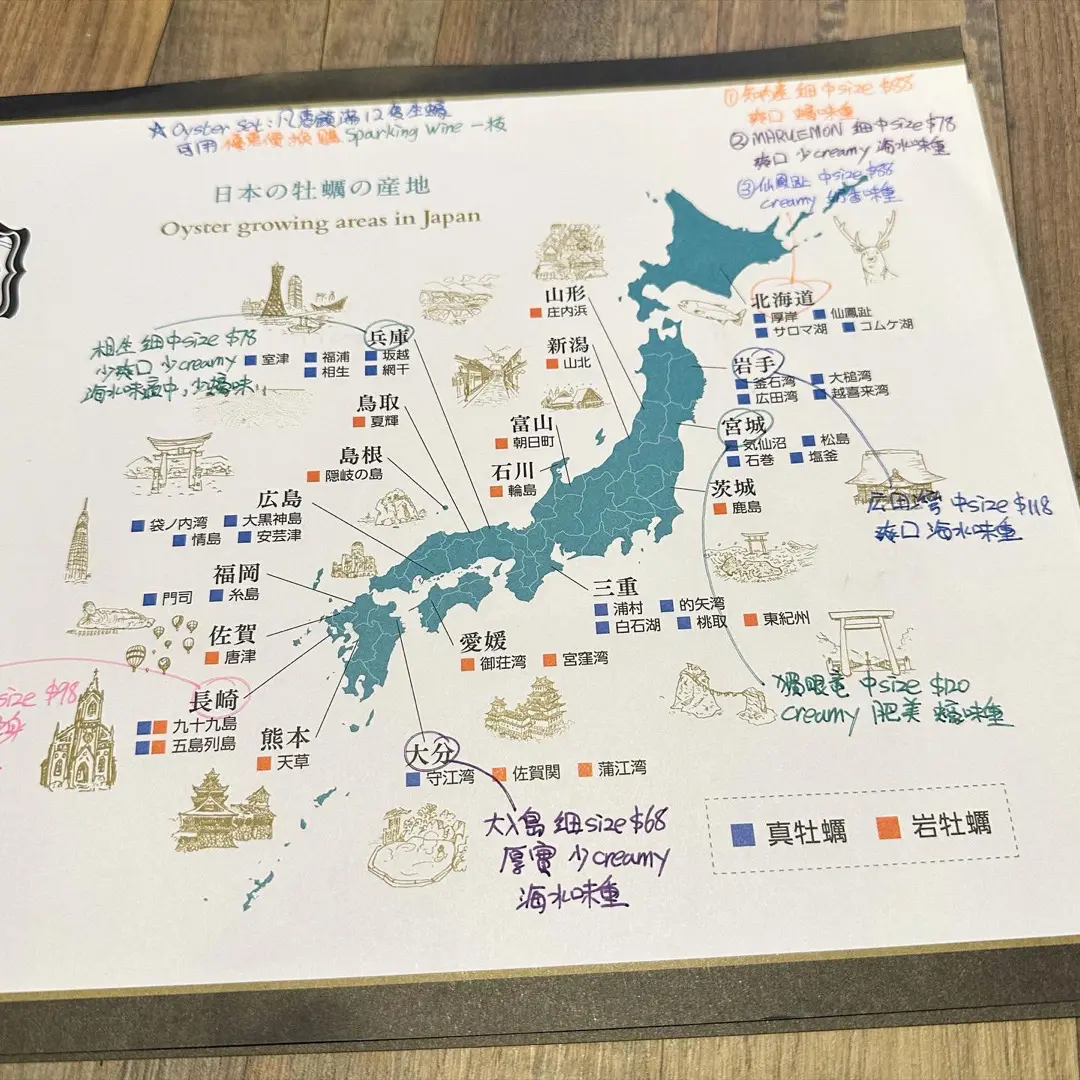 ☆ Oyster Set: 凡惠顧滿12隻生蠔
可用優惠價換購 Sparking Wine 一枝
①知內產 細中size $88
爽口 蠔味重
②MARUEMON 細中size $78
爽口 少creamy 海水味重
③仙鳳趾 中size $88
creamy 奶香味重
日本の牡蠣の産地
Oyster growing areas in Japan
北海道
厚岸 仙鳳趾
サロマ湖 コムケ湖
山形
庄内浜
新潟
山北
岩手
釜石湾 大槌湾
広田湾 越喜来湾
相生 細中size $78
少爽口 少creamy
海水味適中,少蠔味
兵庫
室津 福浦 坂越
相生 網干
鳥取
夏輝
富山
朝日町
宮城
気仙沼 松島
石巻 塩釜
島根
隠岐の島
石川
輪島
茨城
鹿島
広田灣 中size $118
爽口 海水味重
広島
袋ノ内湾 大黒神島
情島 安芸津
福岡
門司 糸島
三重
浦村 的矢湾
白石湖 桃取 東紀州
佐賀
唐津
愛媛
御荘湾 宮窪湾
size $98
長崎
九十九島
五島列島
獨眼竜 中size $120
creamy 肥美 蠔味重
熊本
天草
大分
守江湾 佐賀関 蒲江湾
大入島 細size $68
厚實 少creamy
海水味重
真牡蠣 岩牡蠣